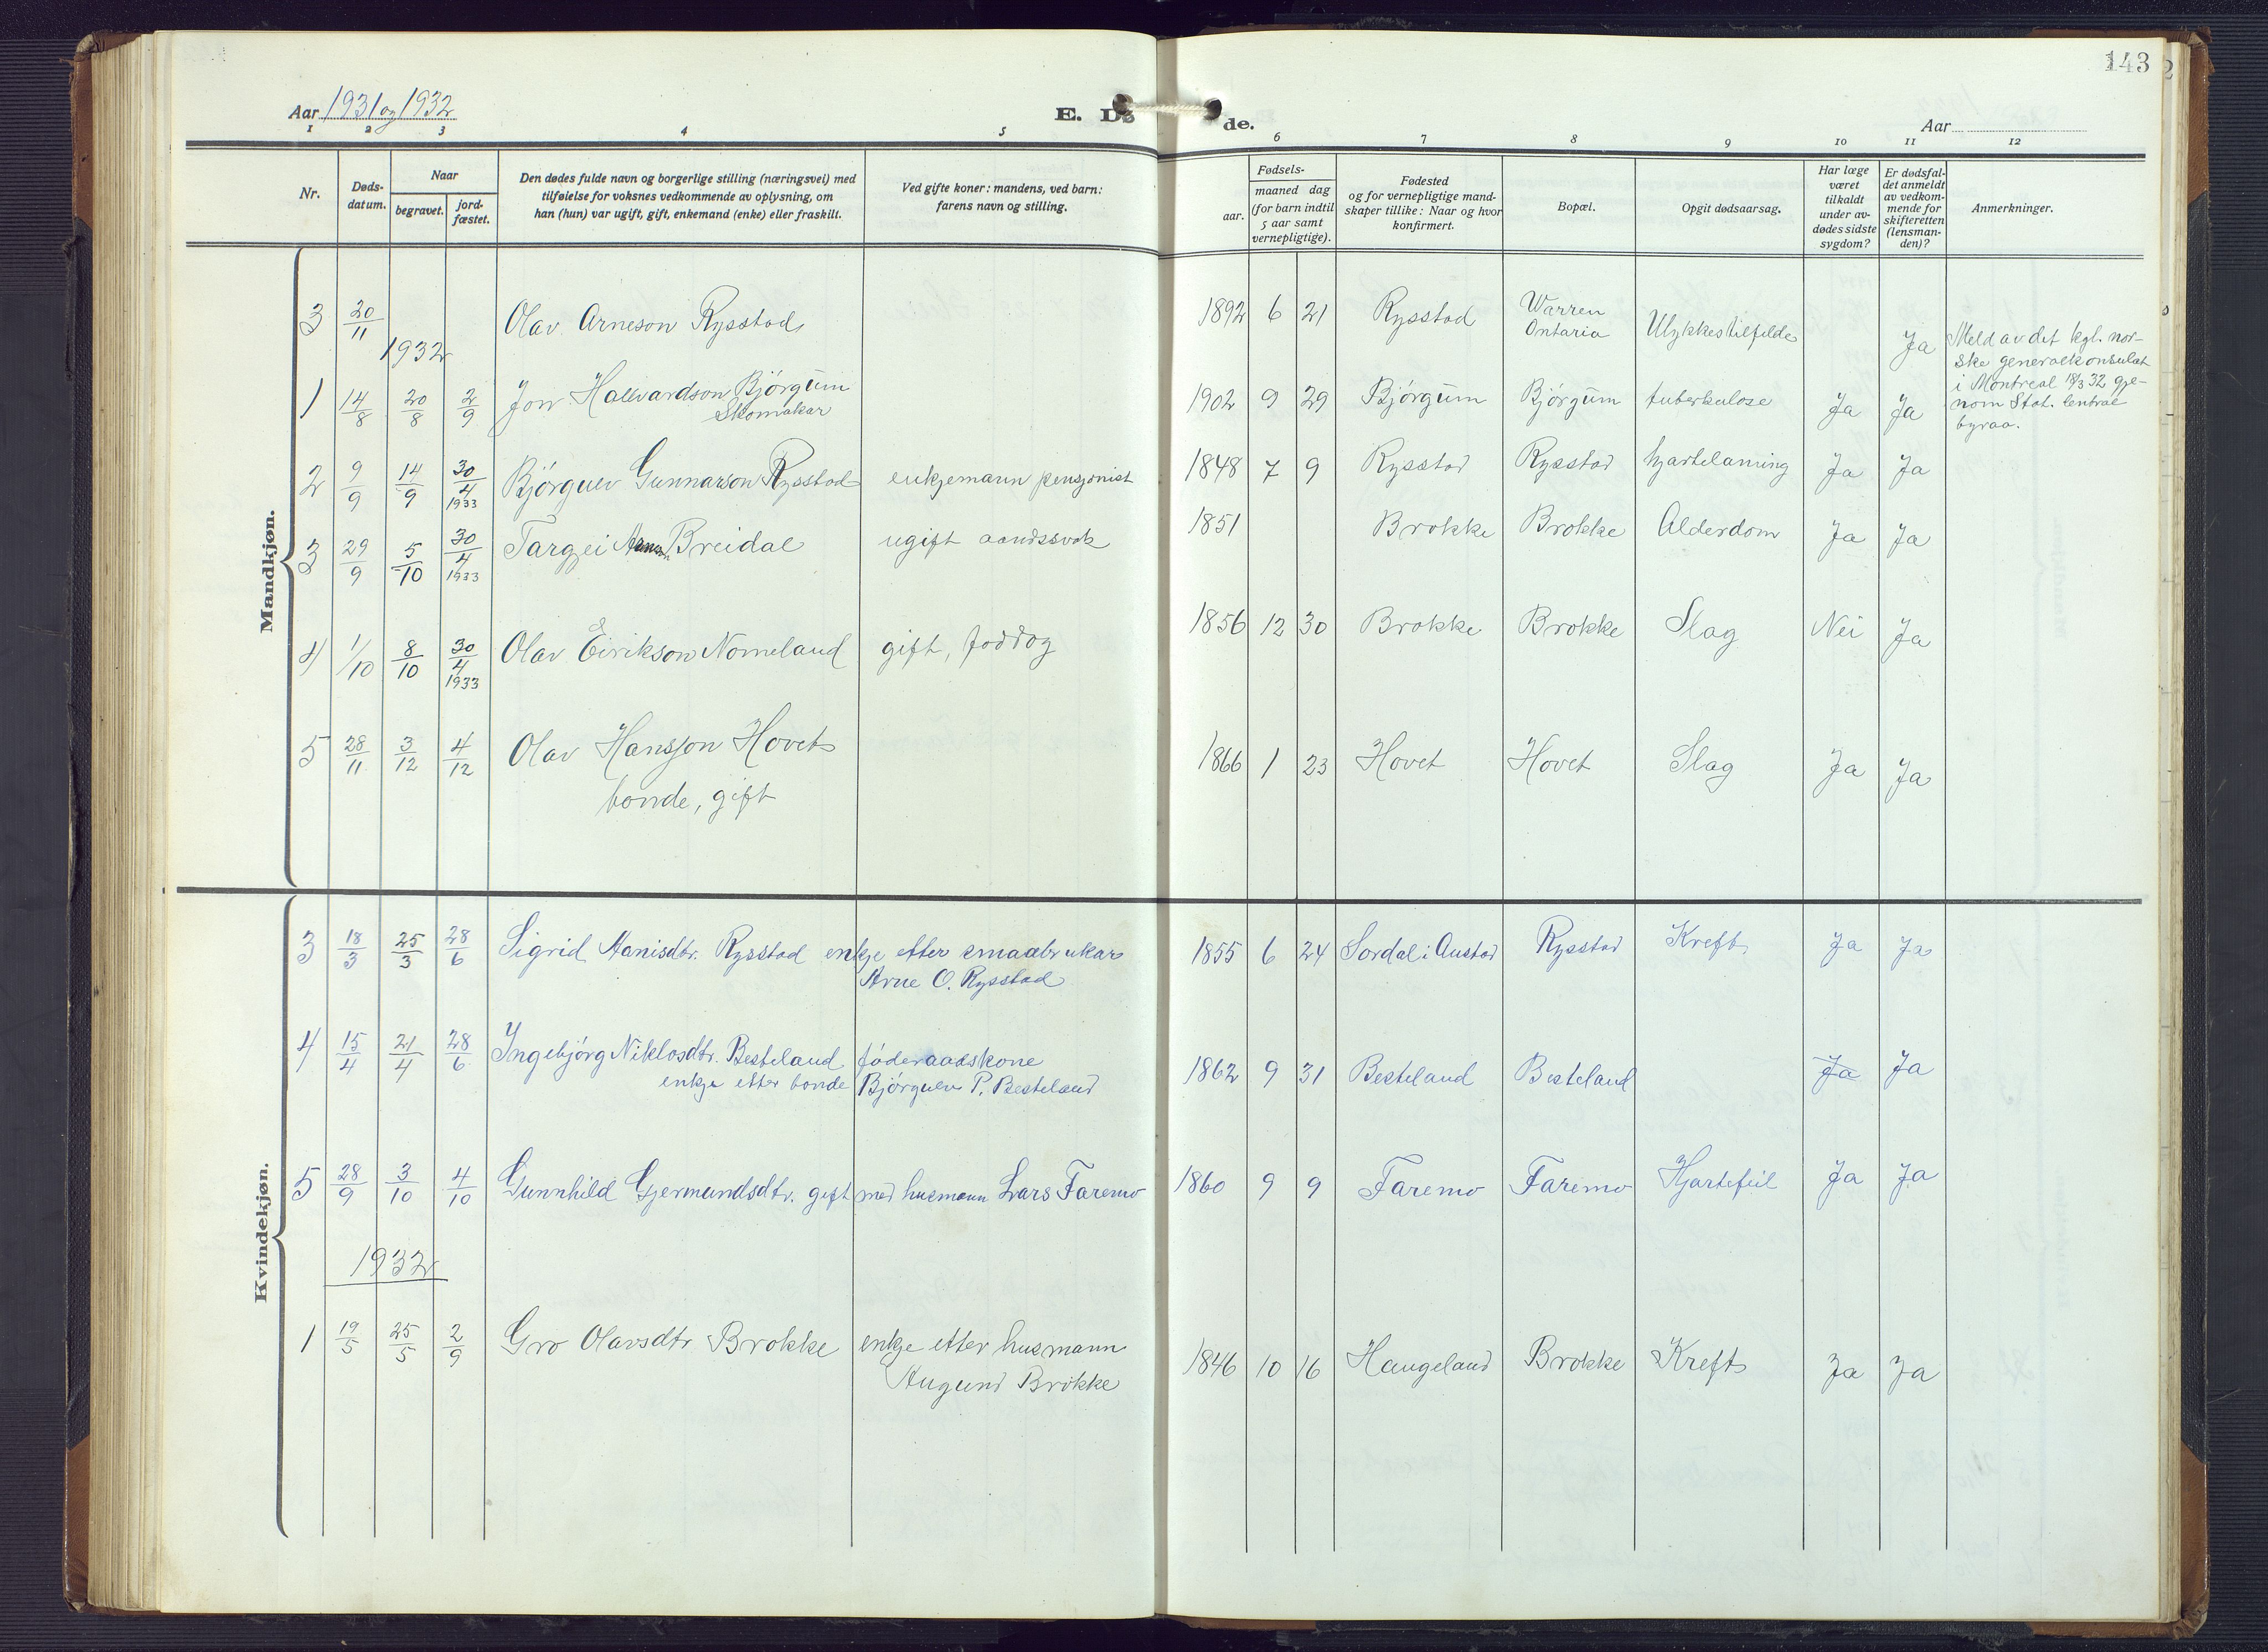 143
Aar 1931 og 1932
E. Dø de.
Aar
1 2 3 4 5 6 7 8 9 10 11 12
Nr.
Døds-
datum.
Naar
begravet.
jord-
fæstet.
Den dødes fulde navn og borgerlige stilling (næringsvei) med
tilføielse for voksnes vedkommende av oplysning, om
han (hun) var ugift, gift, enkemand (enke) eller fraskilt.
Ved gifte koner: mandens, ved barn:
farens navn og stilling.
Fødsels-
aar.
maaned dag
(for barn indtil
5 aar samt
vernepligtige).
Fødested
og for vernepligtige mand-
skaper tillike: Naar og hvor
konfirmert.
Bopæl.
Opgit dødsaarsag.
Har læge
været
tilkaldt
under av-
dødes sidste
sygdom?
Er dødsfal-
det anmeldt
av vedkom-
mende for
skifteretten
(lensman-
den)?
Anmerkninger.
Mandkjøn.
3 20/11 Olav Arneson Rysstad 1892 6 21 Rysstad Warren Ontaria Ulykkestilfelde Ja
Meld av det kgl. nor-
ske generalkonsulat
i Montreal 18/3 32 gje-
nom Stat. Sentral
byraa.
1932
1 14/8 20/8 2/9 Jon Hallvardson Bjørgum 1902 9 29 Bjørgum Bjørgum tuberkulose Ja Ja
Skomakar
2 9/9 14/9 30/4 1933 Bjørguv Gunnarson Rysstad enkjemann pensjonist 1848 7 9 Rysstad Rysstad hjartelaming Ja Ja
3 29/9 5/10 30/4 1933 Targjei Breidal ugift aandssvak 1851 Brokke Brokke Alderdom Ja Ja
4 1/10 8/10 30/4 1933 Olav Eirikson Nomeland gift, 1856 12 30 Brokke Brokke Slag Nei Ja
5 28/11 3/12 4/12 Olav Hansson Hovet 1866 1 23 Hovet Hovet Slag Ja Ja
bonde, gift
Kvindekjøn.
3 18/3 25/3 28/6 Sigrid Aanisdtr. Rysstad enkje etter smaabrukar 1855 6 24 Sordal i Austad Rysstad Kreft Ja Ja
Arne O. Rysstad
4 15/4 21/4 28/6 Ingebjørg Niklosdtr. Besteland føderaadskone 1862 9 31 Besteland Besteland Ja Ja
enkje etter bonde Bjørguv P. Besteland
5 28/9 3/10 4/10 Gunnhild Gjermundsdtr. gift med husmann Lars Faremo 1860 9 9 Faremo Faremo Hjartefeil Ja Ja
1932
1 19/5 25/5 2/9 Gro Olavsdtr Brokke enkje etter husmann 1846 10 16 Haugeland Brokke Kreft Ja Ja
Augund Brokke